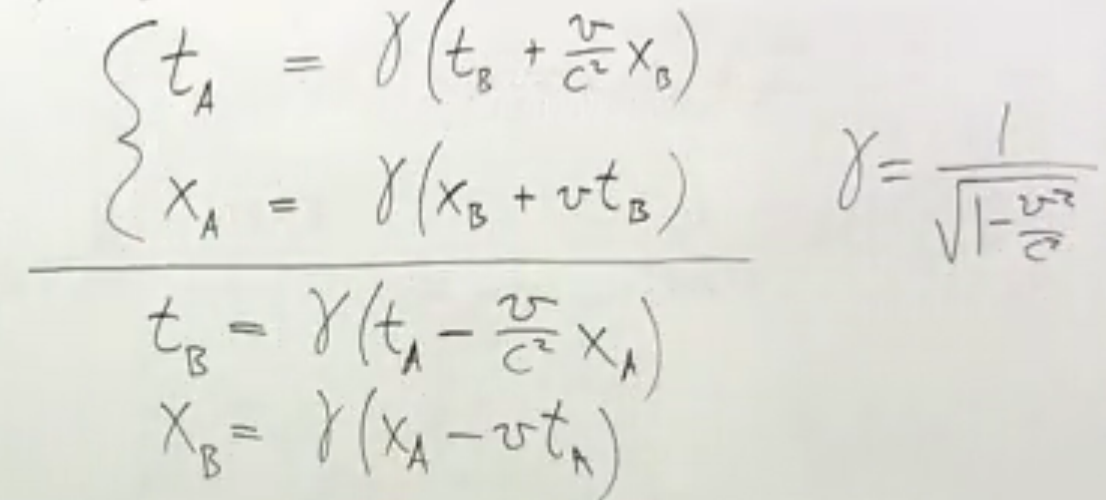 t_A = γ(t_B + v/c² x_B)
x_A = γ(x_B + vt_B)
γ = 1/√(1 - v²/c²)
t_B = γ(t_A - v/c² x_A)
x_B = γ(x_A - vt_A)